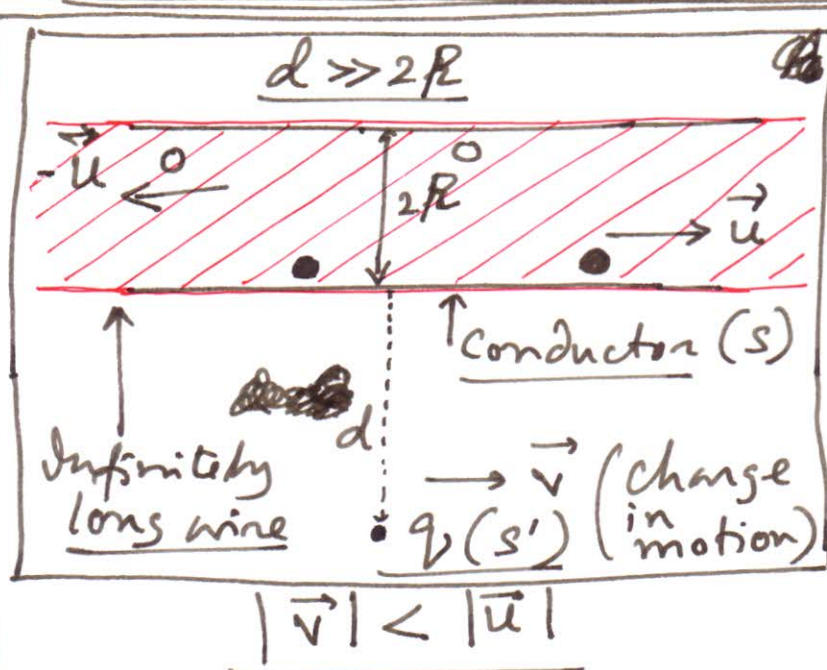 d >> 2R
-u⃗
2R
u⃗
Conductor (s)
d
Infinitely
long wire
v⃗
q (s')
(charge
in
motion)
|v⃗| < |u⃗|